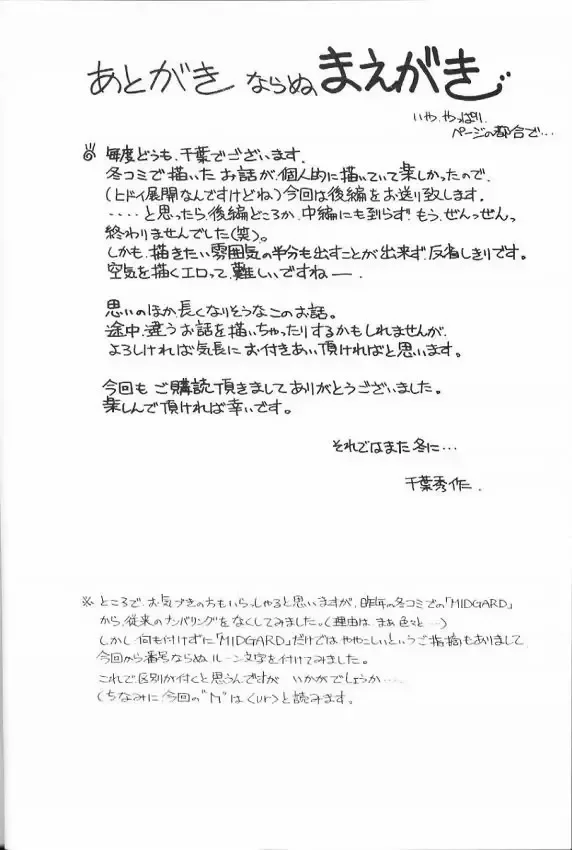 あとがき ならぬ まえがき
いや、やっぱり、
ページの都合で…
毎度どうも、千葉でございます。
冬コミで描いた お話が、個人的に描いていて楽しかったので、
(ヒドイ展開なんですけどね)今回は後編をお送り致します。
‥‥と思ったら、後編どころか、中編にも到らず、もう、ぜんっぜんっ
終わりませんでした(笑)。
しかも、描きたい雰囲気の半分も出すことが出来ず 反省しきりです。
空気を描くエロって、難しいですねー。
思いのほか長くなりそうなこのお話。
途中、違うお話を描いちゃったりするかもしれませんが、
よろしければ気長にお付きあい頂ければと思います。
今回も ご購読頂きましてありがとうございました。
楽しんで頂ければ幸いです。
それではまた冬に…
千葉秀作.
※ ところで、お気づきのかたもいらっしゃると思いますが、昨年の冬コミでの「MIDGARD」
から、従来のナンバリングをなくしてみました。(理由は まぁ 色々と…)
しかし 何も付けずに「MIDGARD」だけでは ややこしいというご指摘もありまして
今回から番号ならぬ ルーン文字を付けてみました。
これで区別が付くと思うんですが いかがでしょうか‥‥
(ちなみに今回の"ᚢ"は〈ur〉と読みます。